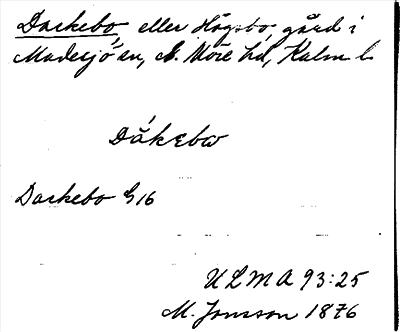 Dackebo, eller Högsbo, gård i
Madesjö sn, S. Möre hd, Kalm. l.
Dåkebω
Dackebo G16
ULMA 93:25
M. Jonsson 1876